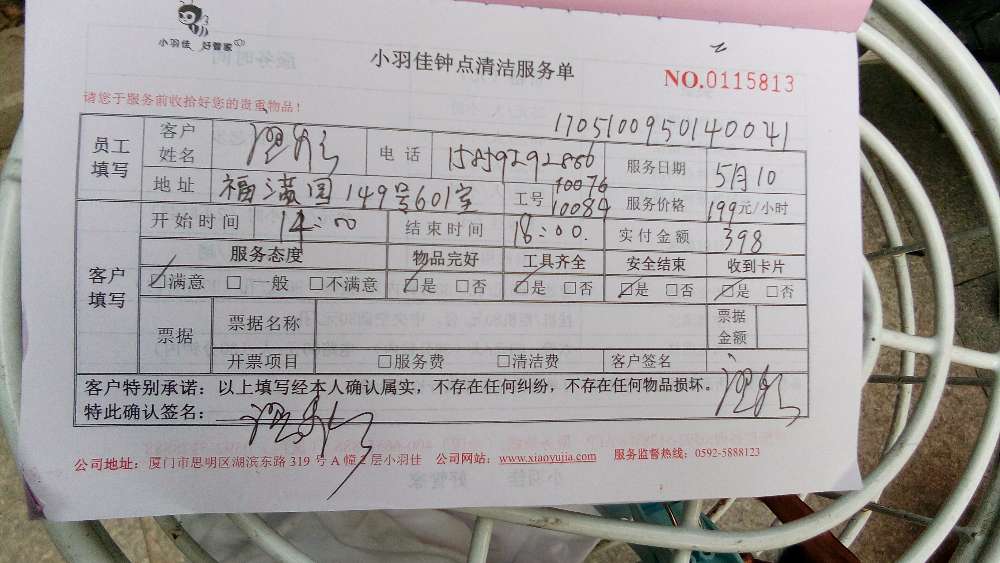 小羽佳 好管家
小羽佳钟点清洁服务单
NO.0115813
请您于服务前收拾好您的贵重物品！
1705100950140041
员工填写 客户姓名 电话 15859292866 服务日期 5月10
地址 福满园149号601室 工号 10076 10084 服务价格 199元/小时
客户填写 开始时间 14:00 结束时间 18:00. 实付金额 398
服务态度 物品完好 工具齐全 安全结束 收到卡片
☑满意 □一般 □不满意 ☑是 □否 ☑是 □否 ☑是 □否 ☑是 □否
票据 票据名称 票据金额
开票项目 □服务费 □清洁费 客户签名
客户特别承诺：以上填写经本人确认属实，不存在任何纠纷，不存在任何物品损坏。
特此确认签名：
公司地址：厦门市思明区湖滨东路 319 号 A 幢 2 层小羽佳 公司网站：www.xiaoyujia.com 服务监督热线：0592-5888123